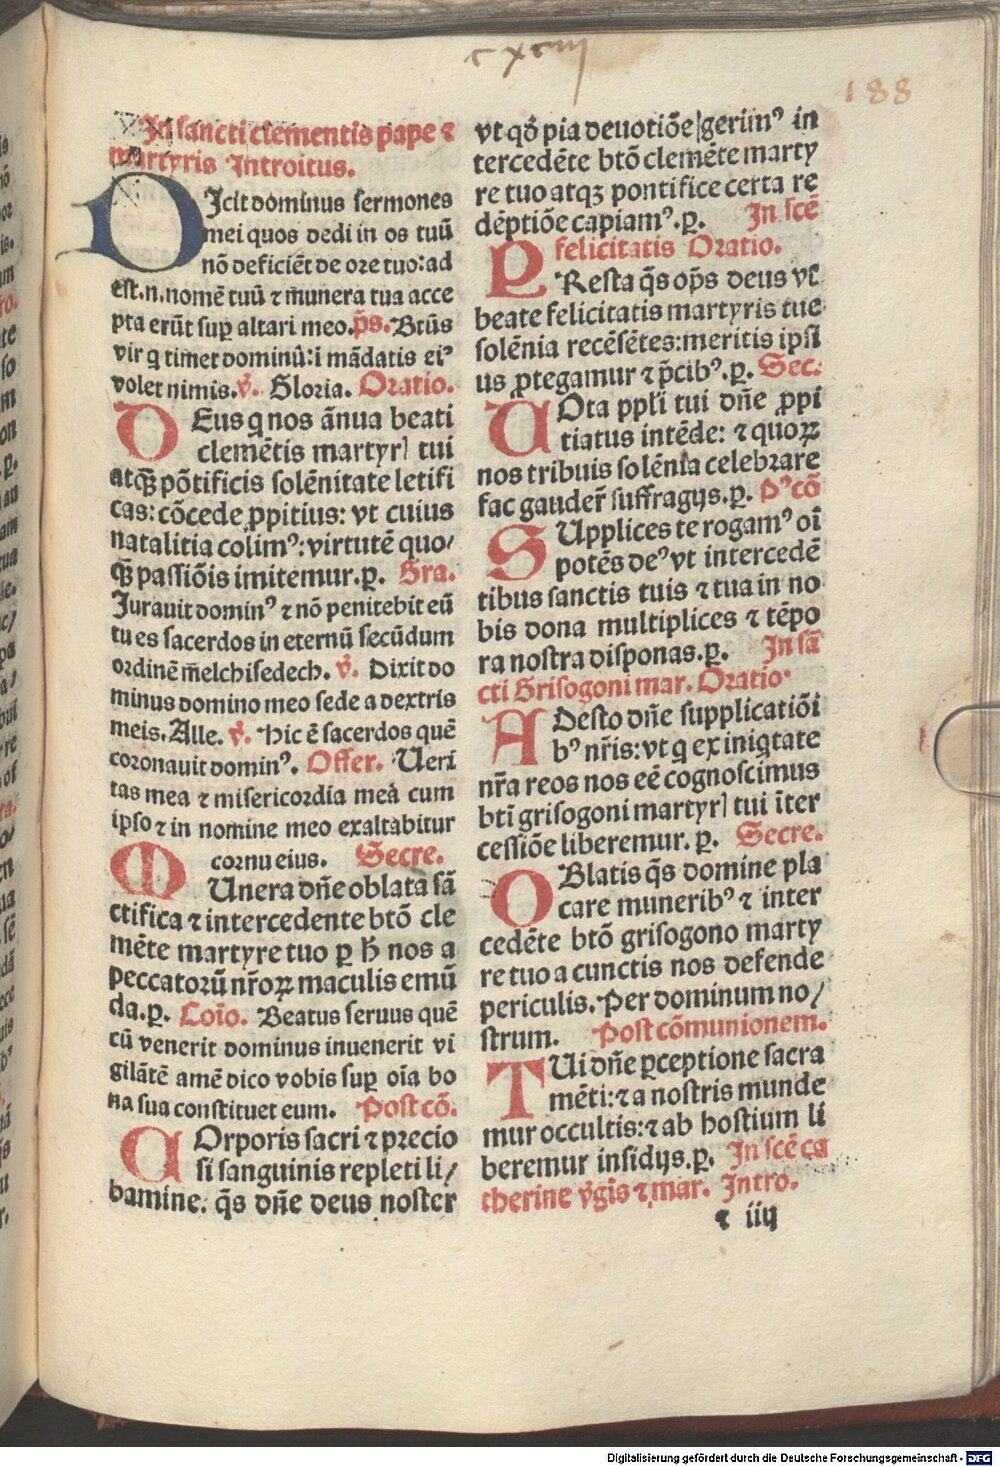 cxciij
188
In sancti clementis pape ⁊
martyris Introitus.
DIcit dominus sermones
mei quos dedi in os tuū
nō deficiēt de ore tuo: ad
est.n.nomē tuū ⁊ munera tua acce
pta erūt suꝑ altari meo. p̄s. Btūs
vir q timet dominū: i mādatis eiꝰ
volet nimis. v̄. Gloria. Oratio.
DEus q nos ānua beati
clemētis martyrꝭ tui
atqꝫ pōtificis solēnitate letifi
cas: cōcede ꝓpitius: vt cuius
natalitia colimꝰ: virtutē quo/
qꝫ passiōis imitemur.ꝑ. Gra.
Jurauit dominꝰ ⁊ nō penitebit eū
tu es sacerdos in eternū secūdum
ordinē melchisedech. v̄. Dixit do
minus domino meo sede a dextris
meis. Alle. v̄. Hic ē sacerdos quē
coronauit dominꝰ. Offer. Ueri
tas mea ⁊ misericordia mea cum
ipso ⁊ in nomine meo exaltabitur
cornu eius. Secre.
MUnera dn̄e oblata sā
ctifica ⁊ intercedente btō cle
mēte martyre tuo ꝑ h̄ nos a
peccatorū nr̄oꝝ maculis emū
da.ꝑ. Cōio. Beatus seruus quē
cū venerit dominus inuenerit vi
gilātē amē dico vobis suꝑ oīa bo
na sua constituet eum. Post cō.
COrporis sacri ⁊ precio
si sanguinis repleti li/
bamine: q̄s dn̄e deus noster
vt qd̄ pia deuotiōe gerimꝰ in
tercedēte btō clemēte marty
re tuo atqꝫ pontifice certa re
dēptiōe capiamꝰ.ꝑ. In scē
felicitatis Oratio.
PResta q̄s op̄s deus vt
beate felicitatis martyris tue
solēnia recēsētes: meritis ipsi
us ꝓtegamur ⁊ p̄cibꝰ.ꝑ. Sec.
UOta ppl̄i tui dn̄e ꝓpi
tiatus intēde: ⁊ quoꝝ
nos tribuis solēnia celebrare
fac gauder̄ suffragijs.ꝑ. Pꝰcō
SUpplices te rogamꝰ oī
potēs deꝰ vt intercedē
tibus sanctis tuis ⁊ tua in no
bis dona multiplices ⁊ tēpo
ra nostra disponas.ꝑ. In sā
cti Grisogoni mar. Oratio.
ADesto dn̄e supplicatiōi
bꝰ nr̄is: vt q ex iniqtate
nr̄a reos nos eē cognoscimus
btī grisogoni martyrꝭ tui īter
cessiōe liberemur.ꝑ. Secre.
OBlatis q̄s domine pla
care muneribꝰ ⁊ inter
cedēte btō grisogono marty
re tuo a cunctis nos defende
periculis. Per dominum no/
strum. Post cōmunionem.
TUi dn̄e ꝑceptione sacra
mēti: ⁊ a nostris munde
mur occultis: ⁊ ab hostium li
beremur insidijs.ꝑ. In scē ca
therine v̄gis ⁊ mar. Intro.
⁊ iiij
Digitalisierung gefördert durch die Deutsche Forschungsgemeinschaft - DFG